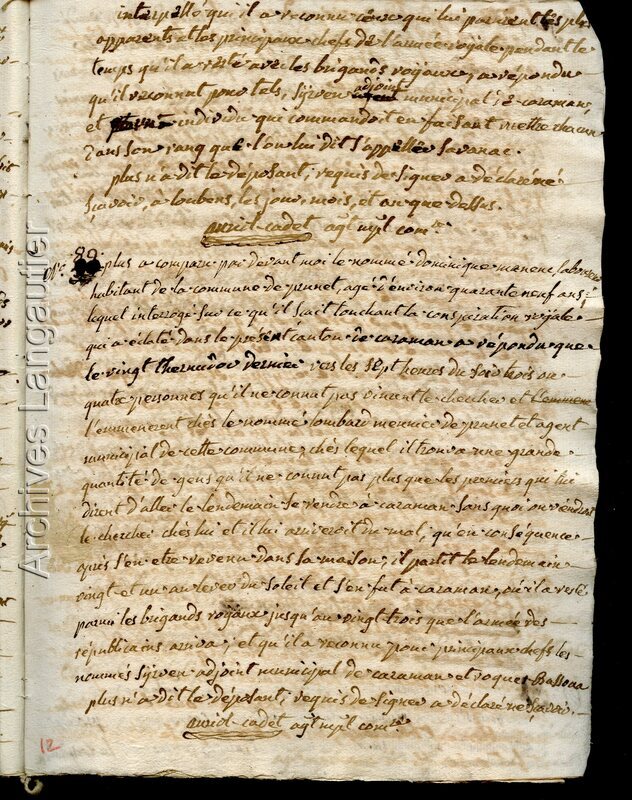 interpellé qu'il a reconnu ceux qui lui parurent les plus
apparents et les principaux chefs de l'armée royale pendant le
temps qu'il a resté avec les brigands royaux, a répondu
qu'il reconnut pour tels, Sirven adjoint municipal de caraman,
et individu qui commandoit en faisant mettre chacun
dans son rang que l'on lui dit s'appeller Savanac.
plus n'a dit le déposant, requis de signer a déclaré ne
Savoir, a loubens, les jour, mois, et an que dessus.
auriol-cadet agt mpl comre
89 plus a comparu par devant moi le nommé dominique manenc, laboureur
habitant de la commune de prunet, agé d'environ quarante neuf ans;
lequel interrogé sur ce qu'il sait touchant la conspiration royale
qui a éclaté dans le présent canton de caraman a répondu que
le vingt thermidor dernier vers les sept heures du soir trois ou
quatre personnes qu'il ne connut pas vinrent le chercher et l'emmene
l'emmenerent chés le nommé lombard mennier de prunet et agent
municipal de cette commune, chés lequel il trouva une grande
quantité de gens qu'il ne connut pas plus que les premiers qui lui
dirent d'aller le lendemain se rendre à caraman sans quoi on viendroit
le chercher chés lui et il lui arriveroit du mal, qu'en conséquence
après s'en etre revenu dans sa maison, il partit le lendemain
vingt et un au lever du soleil et s'en fut à caraman, où il a resté
parmi les brigands royaux jusqu'au vingt trois que l'armée des
républicains arriva; et qu'il a reconnu pour principaux chefs les
nommés Sirven adjoint municipal de caraman et roques
plus n'a dit le déposant, requis de signer a déclaré ne savoir.
auriol-cadet agt mpl comre
12
Archives Langautier